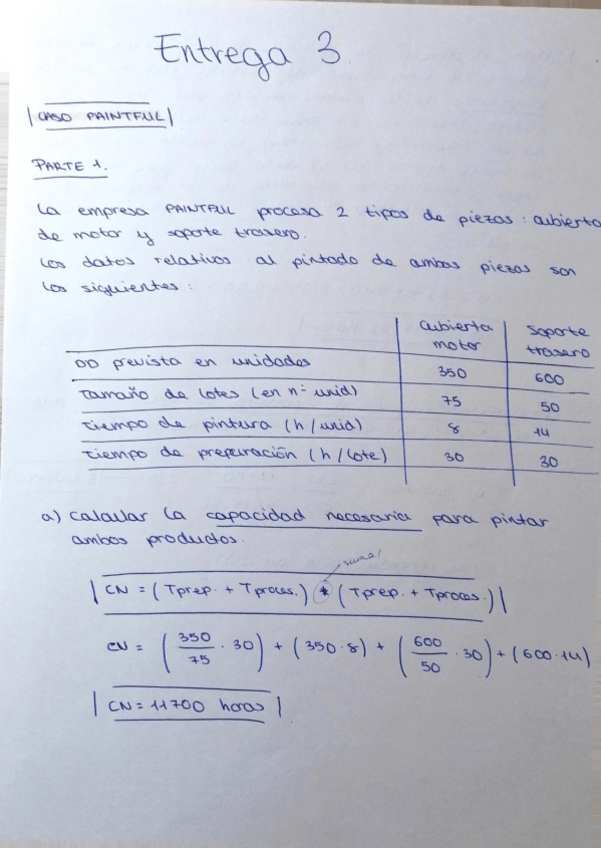 Entrega 3
CASO PAINTFUL
PARTE 1.
La empresa PAINTFUL procesa 2 tipos de piezas: cubierta
de motor y soporte trasero.
Los datos relativos al pintado de ambas piezas son
los siguientes:
cubierta motor | soporte trasero
DD prevista en unidades | 350 | 600
Tamaño de lotes (en nº unid) | 75 | 50
Tiempo de pintura (h/unid) | 8 | 14
Tiempo de preparación (h/lote) | 30 | 30
a) Calcular la capacidad necesaria para pintar
ambos productos.
suma!
CN = (Tprep. + Tproces.) + (Tprep. + Tproces.)
CN = (350/75 · 30) + (350·8) + (600/50 · 30) + (600·14)
CN = 11700 horas